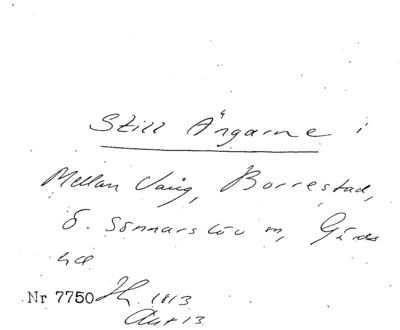 Still Ängarne i
Mellan Vång, Borrestad,
Ö. Sönnarslöv m, Gärds
hd
Nr 7750 1813
Akt 13